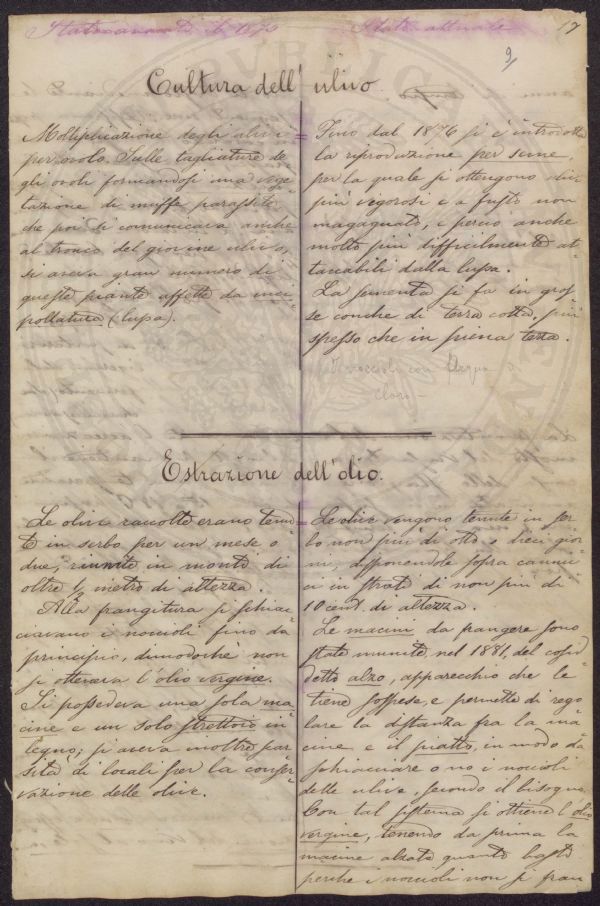 Stato avanti il 1870
Stato attuale
17
9
Cultura dell'ulivo
Moltiplicazione degli ulivi
per ovolo. Sulle tagliature de
gli ovoli formandosi una vege
tazione di muffe parassite
che poi si comunicava anche
al tronco del giovine ulivo,
si aveva gran numero di
queste piante affette da
pollatura (lupa).
= Fino dal 1876 si è introdotta
la riproduzione per seme,
per la quale si ottengono ulivi
più vigorosi e a fusto non
magagnato, e perciò anche
molto più difficilmente at-
taccabili dalla lupa.
La sementa si fa in gros-
se conche di terra cotta, più
spesso che in piena terra.
con Acqua
cloro –
Estrazione dell'olio.
Le olive raccolte erano tenu
te in serbo per un mese o
due, riunite in monti di
oltre ½ metro di altezza.
Alla frangitura si schiac
ciavano i noccioli fino da
principio, dimodochè non
si otteneva l'olio vergine.
Si possedeva una sola ma
cine e un solo strettoio in
legno; si aveva inoltre scar
sità di locali per la conser
vazione delle olive.
= Le olive vengono tenute in ser
bo non più di otto o dieci gior
ni, disponendole sopra cannic
ci in strati di non più di
10 cent. di altezza.
Le macini da frangere sono
state munite, nel 1881, del cosid
detto alzo, apparecchio che le
tiene sospese, e permette di rego
lare la distanza fra la ma
cine e il piatto, in modo da
schiacciare o no i noccioli
delle ulive, secondo il bisogno.
Con tal sistema si ottiene l'olio
vergine, tenendo da prima la
macine alzata quanto basti
perchè i noccioli non si fran